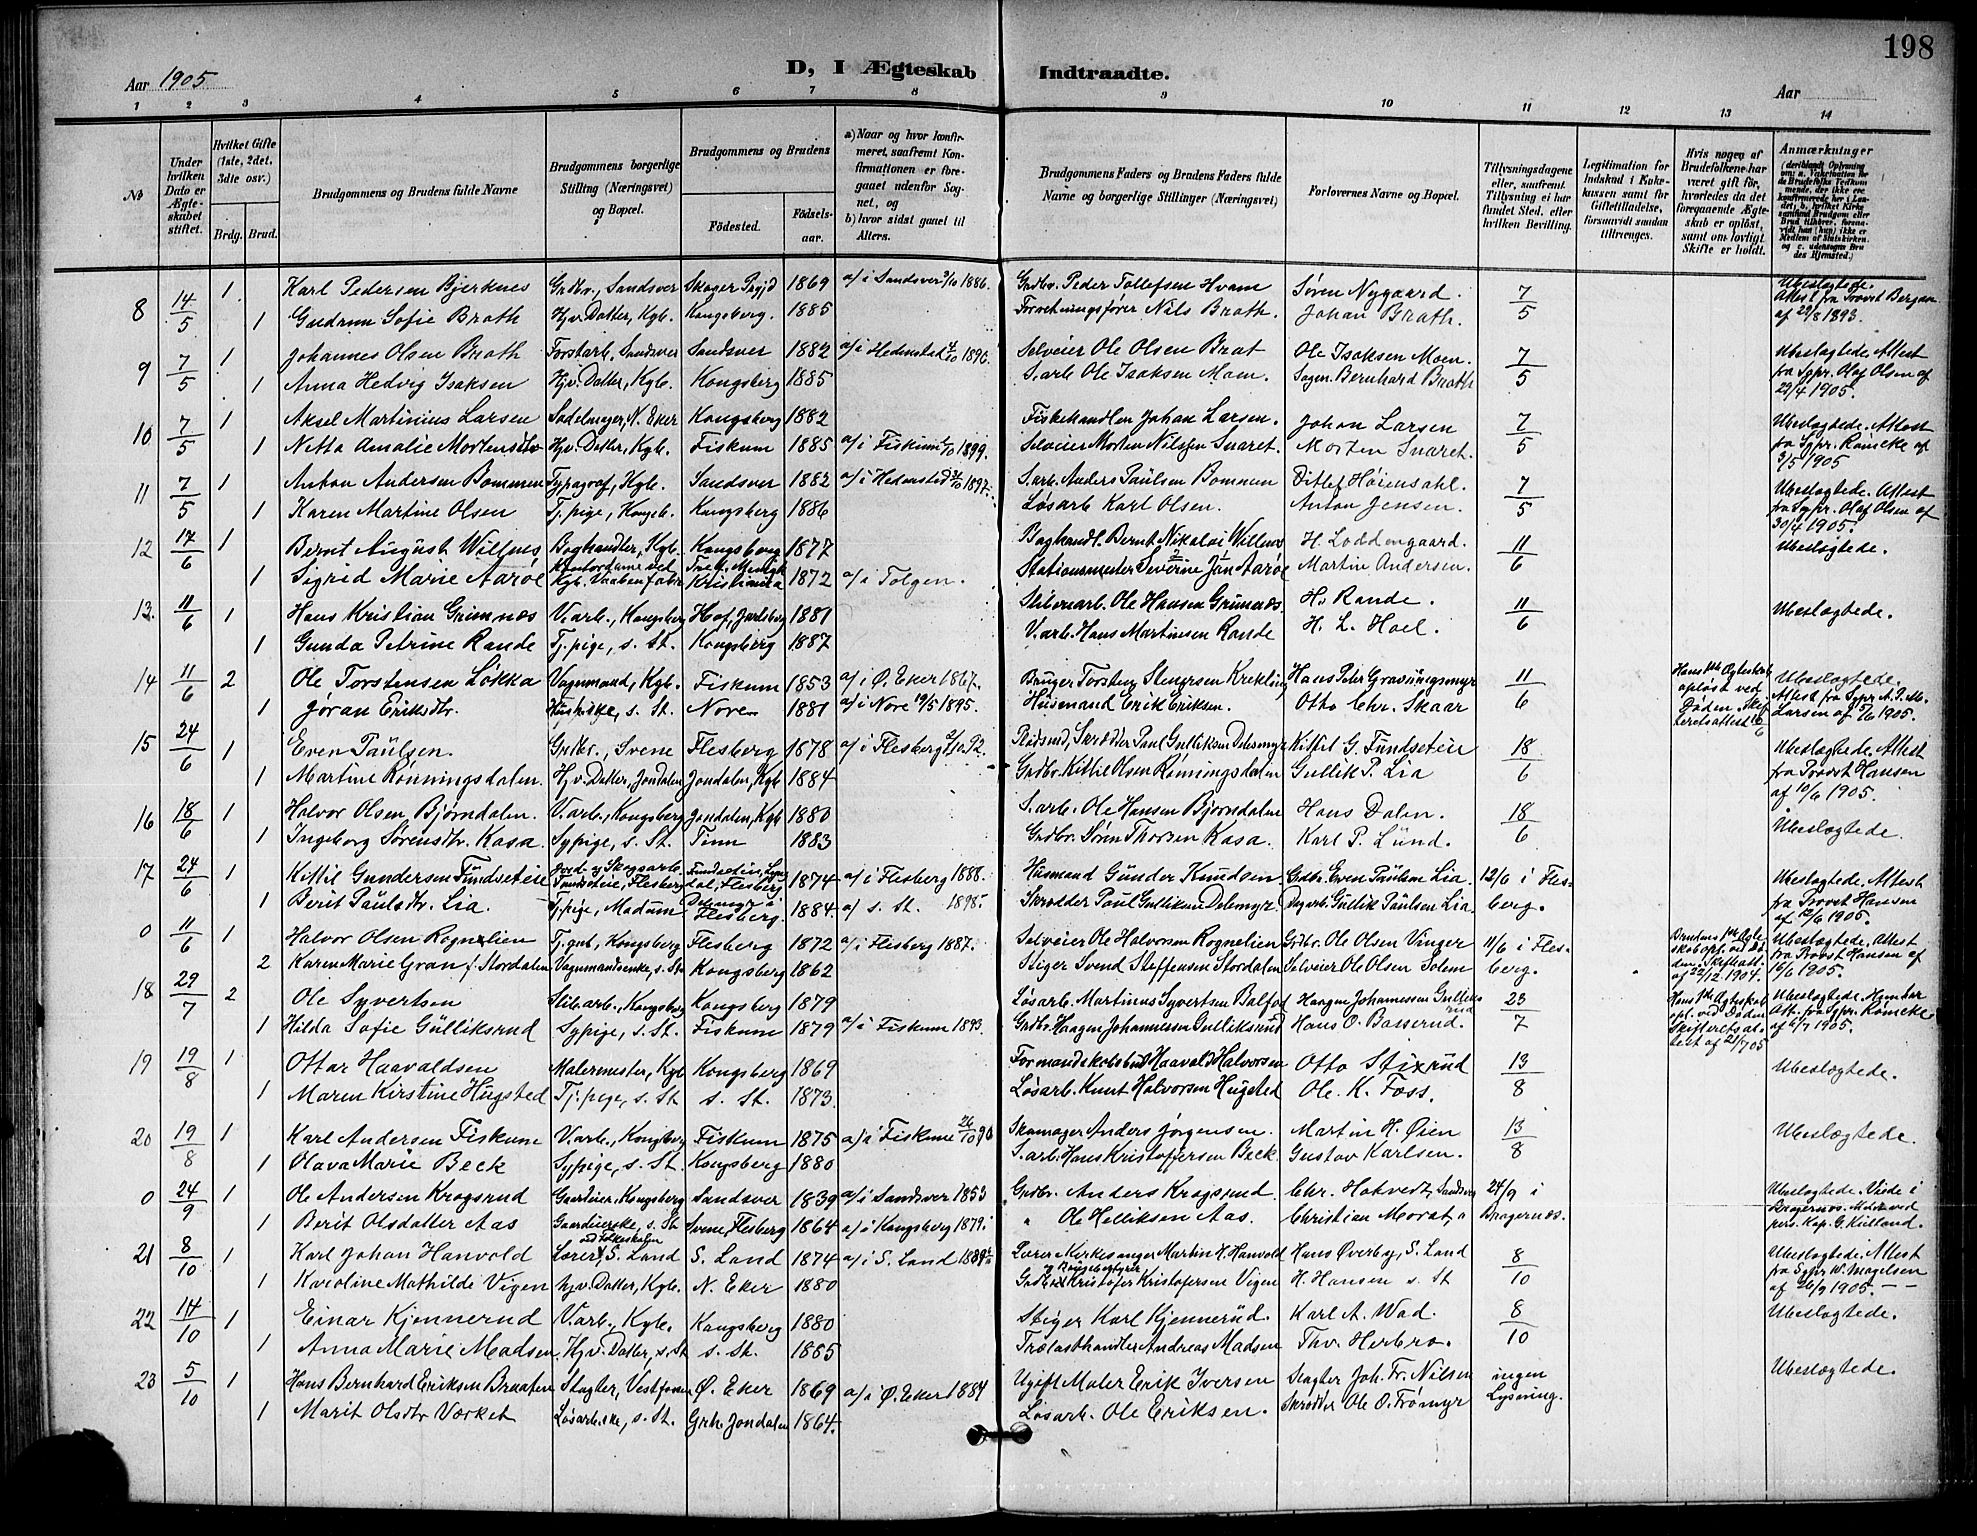 198
Aar 1905.
D, I Ægteskab Indtraadte.
Aar
1 2 3 4 5 6 7 8 9 10 11 12 13 14
№
Under hvilken Dato er Ægteskabet stiftet.
Hvilket Gifte (1ste, 2det, 3die osv.)
Brdg. Brud.
Brudgommens og Brudens fulde Navne
Brudgommens borgerlige Stilling (Næringsvei) og Bopæl.
Brudgommens og Brudens
Fødested.
Fødselsaar.
a) Naar og hvor konfirmeret, saafremt Konfirmationen er foregaaet udenfor Sognet, og
b) hvor sidst gaaet til Alters.
Brudgommens Faders og Brudens Faders fulde Navne og borgerlige Stillinger (Næringsvei)
Forlovernes Navne og Bopæl.
Tillysningsdagene eller, saafremt Tillysning ei har fundet Sted, efter hvilken Bevilling.
Legitimation for Indskud i Enkekassen samt for Giftetilladelse, forsaavidt saadan tiltrænges.
Hvis nogen af Brudefolkene har været gift før, hvorledes da det foregaaende Ægteskab er opløst, samt om lovligt Skifte er holdt.
Anmærkninger
8 14/5 1 Karl Pedersen Bjerknes Grdbr., Sandsver Skoger 1869 a/ i Sandsver 3/10 1886. Grdbr. Peder Tollefsen Hvam Søren Nygaard. 7/5 Ubeslægtede. Attest fra Provst Bergan af 29/8 1893.
1 Gudrun Sofie Brath Hjv. Datter, Kgb. Kongsberg. 1885 Forretningsfører Nils Brath. Johan Brath.
9 7/5 1 Johannes Olsen Brath Forstarb., Sandsver Sandsver 1882 a/ i Hedenstad 4/10 1896. Selveier Ole Olsen Brat Ole Isaksen Moen. 7/5 Ubeslægtede. Attest fra Sgpr. Olaf Olsen af 29/4 1905.
1 Anna Hedvig Isaksen Hjv. Datter, Kgb. Kongsberg 1885 S. arb. Ole Isaksen Moen. Sagm. Bernhard Brath
10 7/5 1 Aksel Martinius Larsen Sadelmager, N. Eker Kongsberg 1882 Fiskehandler Johan Larsen. Johan Larsen 7/5 Ubeslægtede. Attest fra Sgpr. Rømcke af 3/5 1905
1 Netta Amalie Mortensdtr Hjv. Datter, Kgb. Fiskum 1885 a/ i Fiskum 1/10 1899. Selveier Morten Nilsen Svaret. Morten Svaret.
11 7/5 1 Anton Andersen Bommen Typograf, Kgb. Sandsver 1882 a/ i Hedenstad 3/10 1897. S. arb. Anders Paulsen Bommen Ditlef Høiensahl. 7/5 Ubeslægtede. Attest fra Sgpr. Olaf Olsen af 30/4 1905.
1 Karen Martine Olsen Tj. pige, Kongsb. Kongsberg 1886 Løsarb Karl Olsen. Anton Jensen.
12 17/6 1 Bernt August Willnes Boghandler, Kgb. Kongsberg 1877 Boghandl. Bernt Nikolai Willnes H. Loddengaard. 11/6 Ubeslægtede.
1 Sigrid Marie Aarøe Kontordame ved Kgb. Vaabenfabr. Kristiania 1872 a/ i Tolgen. Stationsmester Severine Jan Aarøe Martin Andersen.
13. 11/6 1 Hans Kristian Grimnæs V. arb., Kongsberg Hof, Jarlsberg 1881 Slibearb. Ole Hansen Grimnæs. H. Rande. 11/6 Ubeslægtede.
1 Gunda Petrine Rande Tj. pige, s. St. Kongsberg 1887 V. arb. Hans Martinsen Rande H. L. Hoel.
14 11/6 2 Ole Torstensen Løkka Vognmand, Kgb. Fiskum 1853 a/ i Ø. Eker 1867. Bruger Torsten Stenersen Krekling Hans Peter Gravningsmyr 11/6 Hans 1ste Ægteskab opløst ved Døden. Skifteretsattest Ubeslægtede. Attest fra Sgpr. A. P. M. Larsen af 5/6 1905.
1 Jøran Eriksdtr. Huskiske, s. St. Nore 1881 a/ i Nore 19/5 1895. Husmand Erik Eriksen. Otto Chr. Skaar
15 24/6 1 Even Paulsen. Grdbr., Svene Flesberg 1878 a/ i Flesberg 2/10 92. Skrædder Paul Gulliksen Delemyr Kittil G. Fundsetein 18/6 Ubeslægtede. Attest fra Provst Hansen af 10/6 1905.
1 Martine Rønningsdalen. Hjv. Datter, Jondalen Jondalen, Kgb 1884 Grdbr. Kittil Olsen Rønningsdalen Gullik P. Lia
16 18/6 1 Halvor Olsen Bjørndalen. V. arb., Kongsberg Jondalen, Kgb 1880 S. arb. Ole Hansen Bjørndalen Hans Dalen. 18/6 Ubeslægtede.
1 Ingeborg Sørensdtr. Kasa. Sypige, s. St. Tinn 1883 Grdbr. Søren Thorsen Kasa. Karl P. Lund.
17 24/6 1 Kittil Gundersen Fundseteie Jord- og Skogsarb. Fundseteie, Flesberg Flesberg 1874 a/ i Flesberg 1888. Husmand Gunder Knudsen. Grdbr. Even Paulsen Lia. 12/6 i Flesberg. Ubeslægtede. Attest fra Provst Hansen af 12/6 1905.
1 Berit Paulsdtr. Lia. Tj. pige, Modum Delemyr i Flesberg. 1884 a/ s. St. 1898. Skrædder Paul Gulliksen Delemyr. Dagarb. Gullik Paulsen Lia.
0 11/6 1 Halvor Olsen Rognelien Tj. gut, Kongsberg Flesberg 1872 a/ i Flesberg 1887. Selveier Ole Halvorsen Rognelien Grdbr. Ole Olsen Vinger 11/6 i Flesberg. Brudens 1ste Ægteskab opl. ved Døden. Skifteatt. af 22/12 1904. Ubeslægtede. Attest fra Provst Hansen af 16/6 1905.
2 Karen Marie Gran f. Stordalen Vognmandsenke, s. St Kongsberg 1862 Stiger Svend Steffensen Stordalen Selveier Ole Olsen Solem
18 29/7 2 Ole Syvertsen Slibarb., Kongsberg Kongsberg 1879 Løsarb. Martinus Syvertsen Balfod Haagen Johannessen Gulliksrud 23/7 Hans 1ste Ægteskab opl. ved Døden Skifteretsattest af 21/7 05 Ubeslægtede. Hun har Att. fra Sgpr. Rømcke af 6/7 1905.
1 Hilda Sofie Gulliksrud Sypige, s. St. Fiskum 1879 a/ i Fiskum 1893. Grdbr. Haagen Johannessen Gulliksrud Hans O. Basserud.
19 19/8 1 Ottar Haavaldsen Malermester, Kgb Kongsberg 1869 Formandskabsbud Haavald Halvorsen Otto Stixrud 13/8 Ubeslægtede.
1 Maren Kirstine Hugsted Tj. pige, s. St s. St. 1873. Løsarb. Knut Halvorsen Hugsted Ole. K. Foss.
20 19/8 1 Karl Andersen Fiskum V. arb., Kongsberg Fiskum 1875 a/ i Fiskum 26/10 90 Skomager Anders Jørgensen. Martin H. Øien 13/8 Ubeslægtede.
1 Olava Marie Beck Sypige, s. St. Kongsberg 1880 S. arb. Hans Kristoffersen Beck. Gustav Karlsen.
0 24/9 1 Ole Andersen Krogsrud Gaardeier, Kongsberg Sandsver 1839 a/ i Sandsver 1853 Grdbr. Anders Krogsrud. Chr. Hakvedt, Sandsver 24/9 i Bragernæs. Ubeslægtede. Viede i Bragernæs. Kap. G. Kielland.
1 Berit Olsdatter Aas Gaardeierske, s. St Svene, Flesberg 1864 a/ i Kongsberg 1879. " Ole Helliksen Aas. Christian Morat,
21 8/10 1 Karl Johan Hanvold Lærer ved Folkeskolen, S. Land S. Land 1874 a/ i S. Land 1889 Lærer & Kirkesanger Martin H. Hanvold Hans Øverby, S. Land 8/10 Ubeslægtede. Attest fra Sgpr W. Magelsen af 26/9 1905. — —
1 Karoline Mathilde Vigen Hjv. Datter, Kgb. N. Eker 1880 Grdbr. Kristofer Kristofersen Vigen H. Hansen s. St
22 14/10 1 Einar Kjennerud V. arb., Kgb. Kongsberg 1880 Stiger Karl Kjennerud. Karl A. Wad. 8/10 Ubeslægtede.
1 Anna Marie Madsen Hjv. Datter, s. St s. St. 1885 Trælasthandler Andreas Madsen Thv. Herbro.
23 5/10 1 Hans Bernhard Eriksen Braaten Slagter, Vestfossen Ø. Eker 1869 a/ i Ø. Eker 1884 Ugift Maler Erik Iversen Slagter Joh. Fr. Nilsen ingen Lysning. Ubeslægtede.
1 Marit Olsdtr Værket Løsarb.ske, s. St. Grh. Jondalen 1864. Løsarb. Ole Eriksen. Skrædder Ole O. Frømyr